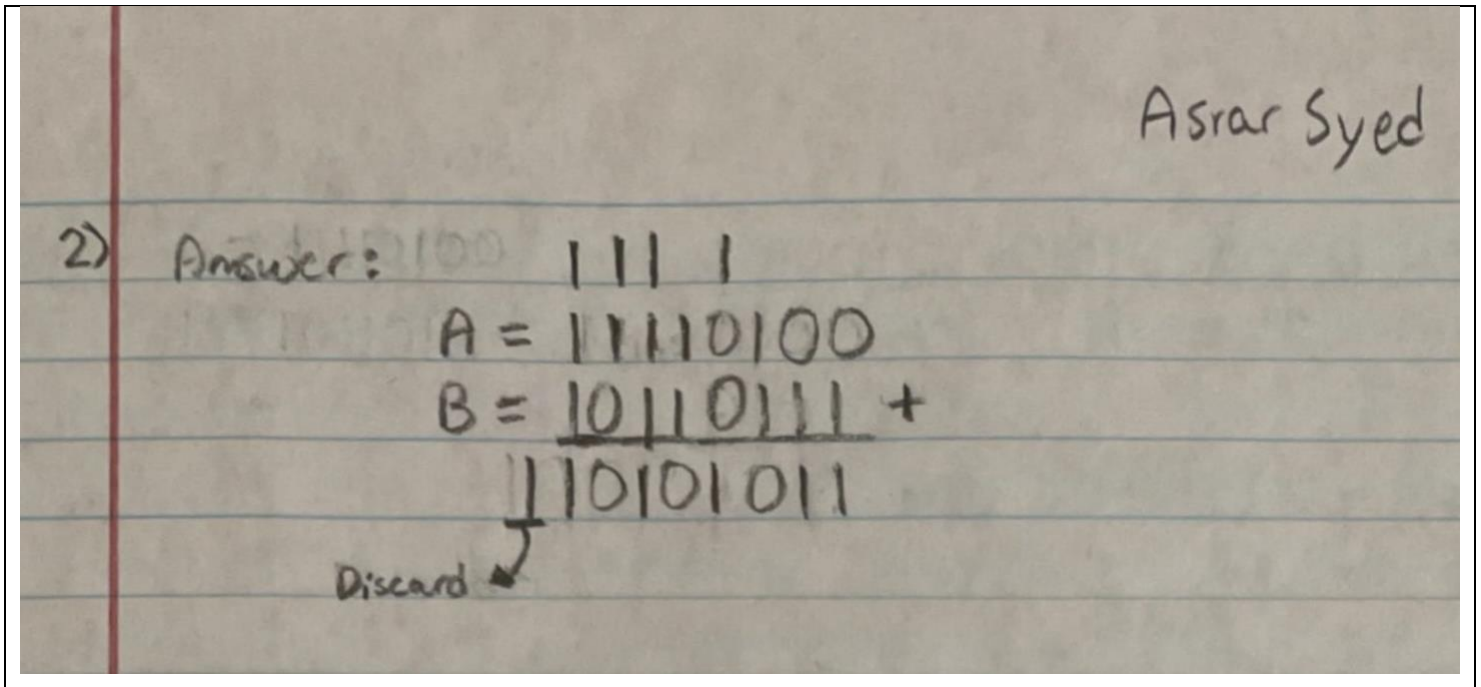 Asrar Syed
2) Answer: 1 1 1 1
A = 11110100
B = 10110111 +
110101011
Discard